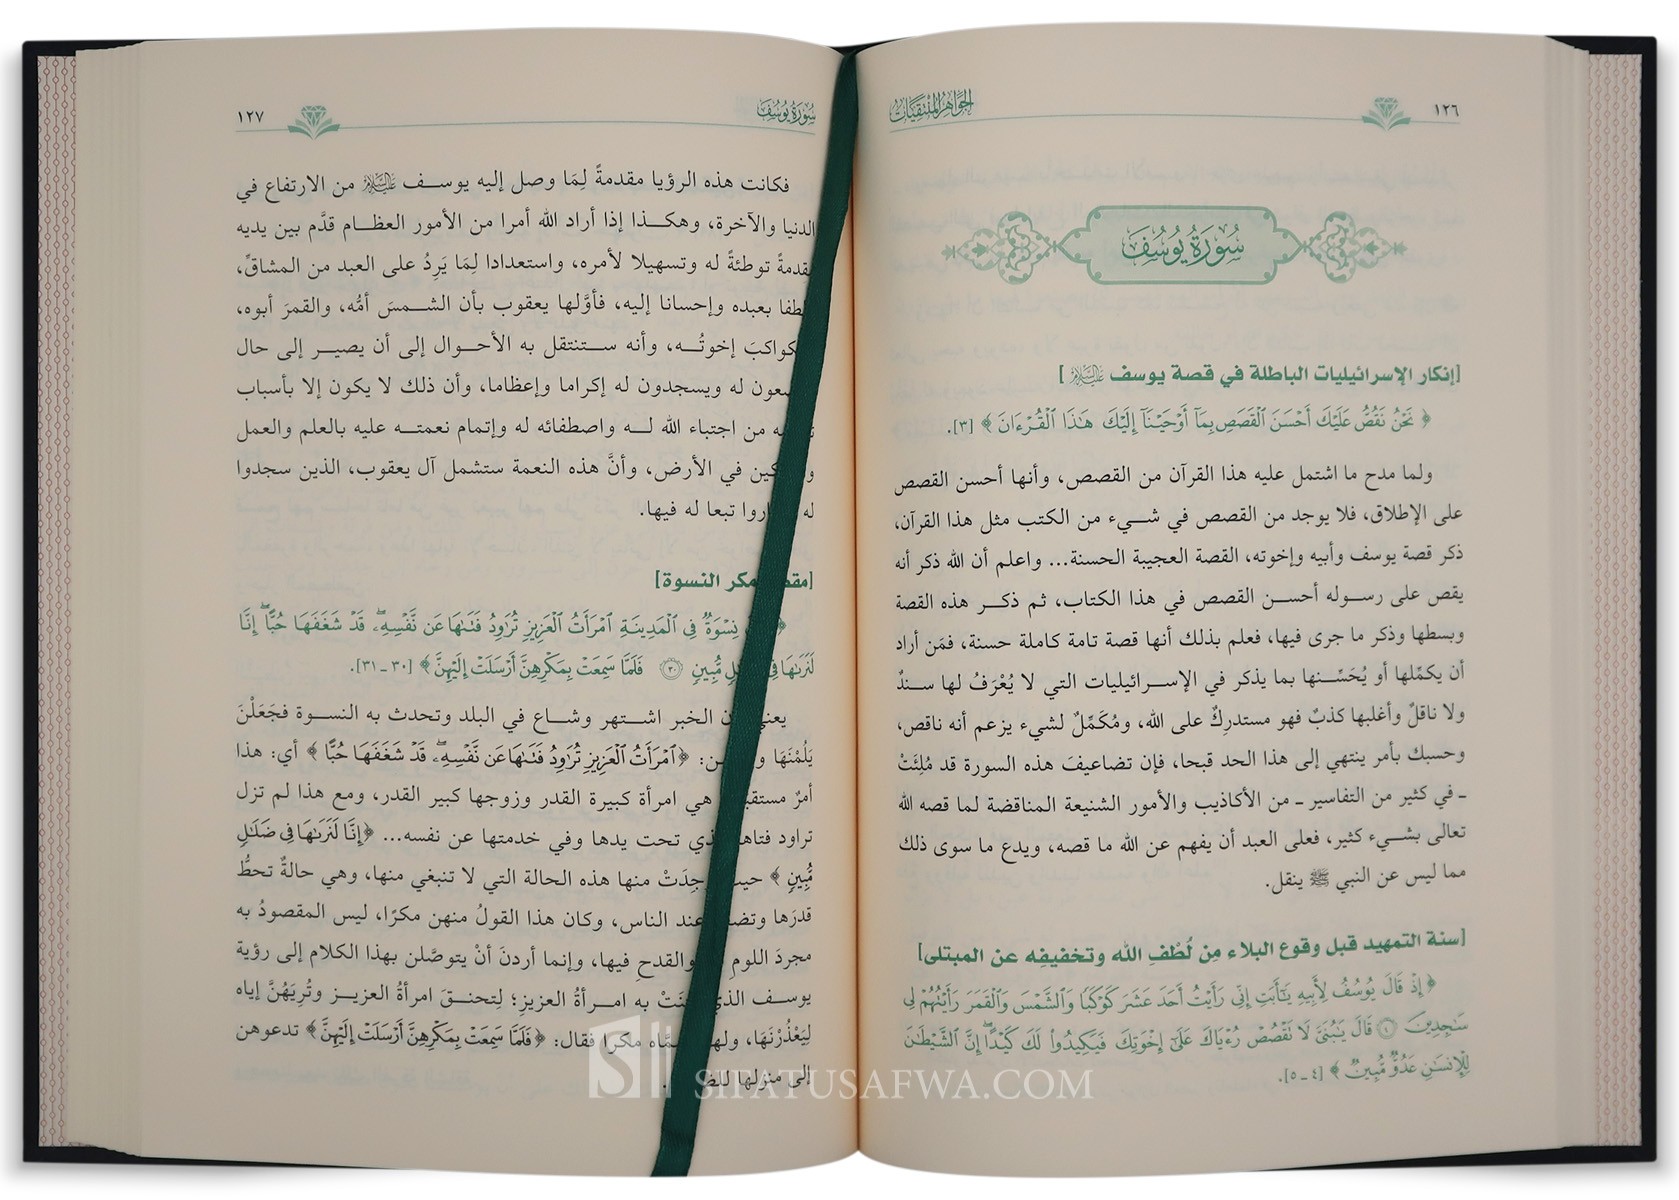 ١٢٦
الجواهر المنتقيات
سُورَةُ يُوسُفَ
[إنكار الإسرائيليات الباطلة في قصة يوسف عليه السلام]
﴿ نَحْنُ نَقُصُّ عَلَيْكَ أَحْسَنَ ٱلْقَصَصِ بِمَآ أَوْحَيْنَآ إِلَيْكَ هَٰذَا ٱلْقُرْءَانَ ﴾ [٣].
ولما مدح ما اشتمل عليه هذا القرآن من القصص، وأنها أحسن القصص
على الإطلاق، فلا يوجد من القصص في شيء من الكتب مثل هذا القرآن،
ذكر قصة يوسف وأبيه وإخوته، القصة العجيبة الحسنة... واعلم أن الله ذكر أنه
يقص على رسوله أحسن القصص في هذا الكتاب، ثم ذكر هذه القصة
وبسطها وذكر ما جرى فيها، فعلم بذلك أنها قصة تامة كاملة حسنة، فمَن أراد
أن يكمِّلها أو يُحَسِّنها بما يذكر في الإسرائيليات التي لا يُعْرَفُ لها سندٌ
ولا ناقلٌ وأغلبها كذبٌ فهو مستدرِكٌ على الله، ومُكَمِّلٌ لشيء يزعم أنه ناقص،
وحسبك بأمر ينتهي إلى هذا الحد قبحا، فإن تضاعيفَ هذه السورة قد مُلِئَتْ
ـ في كثير من التفاسير ـ من الأكاذيب والأمور الشنيعة المناقضة لما قصه الله
تعالى بشيء كثير، فعلى العبد أن يفهم عن الله ما قصه، ويدع ما سوى ذلك
مما ليس عن النبي ﷺ ينقل.
[سنة التمهيد قبل وقوع البلاء مِن لُطْفِ الله وتخفيفِه عن المبتلى]
﴿ إِذْ قَالَ يُوسُفُ لِأَبِيهِ يَٰٓأَبَتِ إِنِّي رَأَيْتُ أَحَدَ عَشَرَ كَوْكَبًا وَٱلشَّمْسَ وَٱلْقَمَرَ رَأَيْتُهُمْ لِي
سَٰجِدِينَ ٤ قَالَ يَٰبُنَيَّ لَا تَقْصُصْ رُءْيَاكَ عَلَىٰٓ إِخْوَتِكَ فَيَكِيدُوا۟ لَكَ كَيْدًا إِنَّ ٱلشَّيْطَٰنَ
لِلْإِنسَٰنِ عَدُوٌّ مُّبِينٌ ﴾ [٤ ـ ٥].
سُورَةُ يُوسُفَ
١٢٧
فكانت هذه الرؤيا مقدمةً لِمَا وصل إليه يوسف عليه السلام من الارتفاع في
الدنيا والآخرة، وهكذا إذا أراد الله أمرا من الأمور العظام قدَّم بين يديه
توطئةً له وتسهيلا لأمره، واستعدادا لِمَا يَرِدُ على العبد من المشاقِّ،
بعبده وإحسانا إليه، فأوَّلها يعقوب بأن الشمسَ أمُّه، والقمرَ أبوه،
إخوتُه، وأنه ستنتقل به الأحوال إلى أن يصير إلى حال
له ويسجدون له إكراما وإعظاما، وأن ذلك لا يكون إلا بأسباب
من اجتباء الله له واصطفائه له وإتمام نعمته عليه بالعلم والعمل
في الأرض، وأنَّ هذه النعمة ستشمل آل يعقوب، الذين سجدوا
له تبعا له فيها.
مكر النسوة]
﴿ نِسْوَةٌ فِي ٱلْمَدِينَةِ ٱمْرَأَتُ ٱلْعَزِيزِ تُرَٰوِدُ فَتَىٰهَا عَن نَّفْسِهِۦ قَدْ شَغَفَهَا حُبًّا إِنَّا
لَنَرَىٰهَا فِي مُّبِينٍ ٣٠ فَلَمَّا سَمِعَتْ بِمَكْرِهِنَّ أَرْسَلَتْ إِلَيْهِنَّ ﴾ [٣٠ ـ ٣١].
يعني الخبر اشتهر وشاع في البلد وتحدث به النسوة فجَعَلْنَ
يَلُمْنَهَا ﴿ٱمْرَأَتُ ٱلْعَزِيزِ تُرَٰوِدُ فَتَىٰهَا عَن نَّفْسِهِۦ قَدْ شَغَفَهَا حُبًّا ﴾ أي: هذا
أمرٌ هي امرأة كبيرة القدر وزوجها كبير القدر، ومع هذا لم تزل
تراود تحت يدها وفي خدمتها عن نفسه... ﴿إِنَّا لَنَرَىٰهَا فِي ضَلَٰلٍ
مُّبِينٍ ﴾ منها هذه الحالة التي لا تنبغي منها، وهي حالةٌ تحطُّ
قدرَها عند الناس، وكان هذا القولُ منهن مكرًا، ليس المقصودُ به
مجردَ اللوم والقدح فيها، وإنما أردنَ أنْ يتوصَّلن بهذا الكلام إلى رؤية
يوسف به امرأةُ العزيز؛ لِتحنقَ امرأةُ العزيز وتُرِيَهُنَّ إياه
لِيَعْذُرْنَهَا، مكرا فقال: ﴿فَلَمَّا سَمِعَتْ بِمَكْرِهِنَّ أَرْسَلَتْ إِلَيْهِنَّ﴾ تدعوهن
إلى منزلها
SIFATUSAFWA.COM